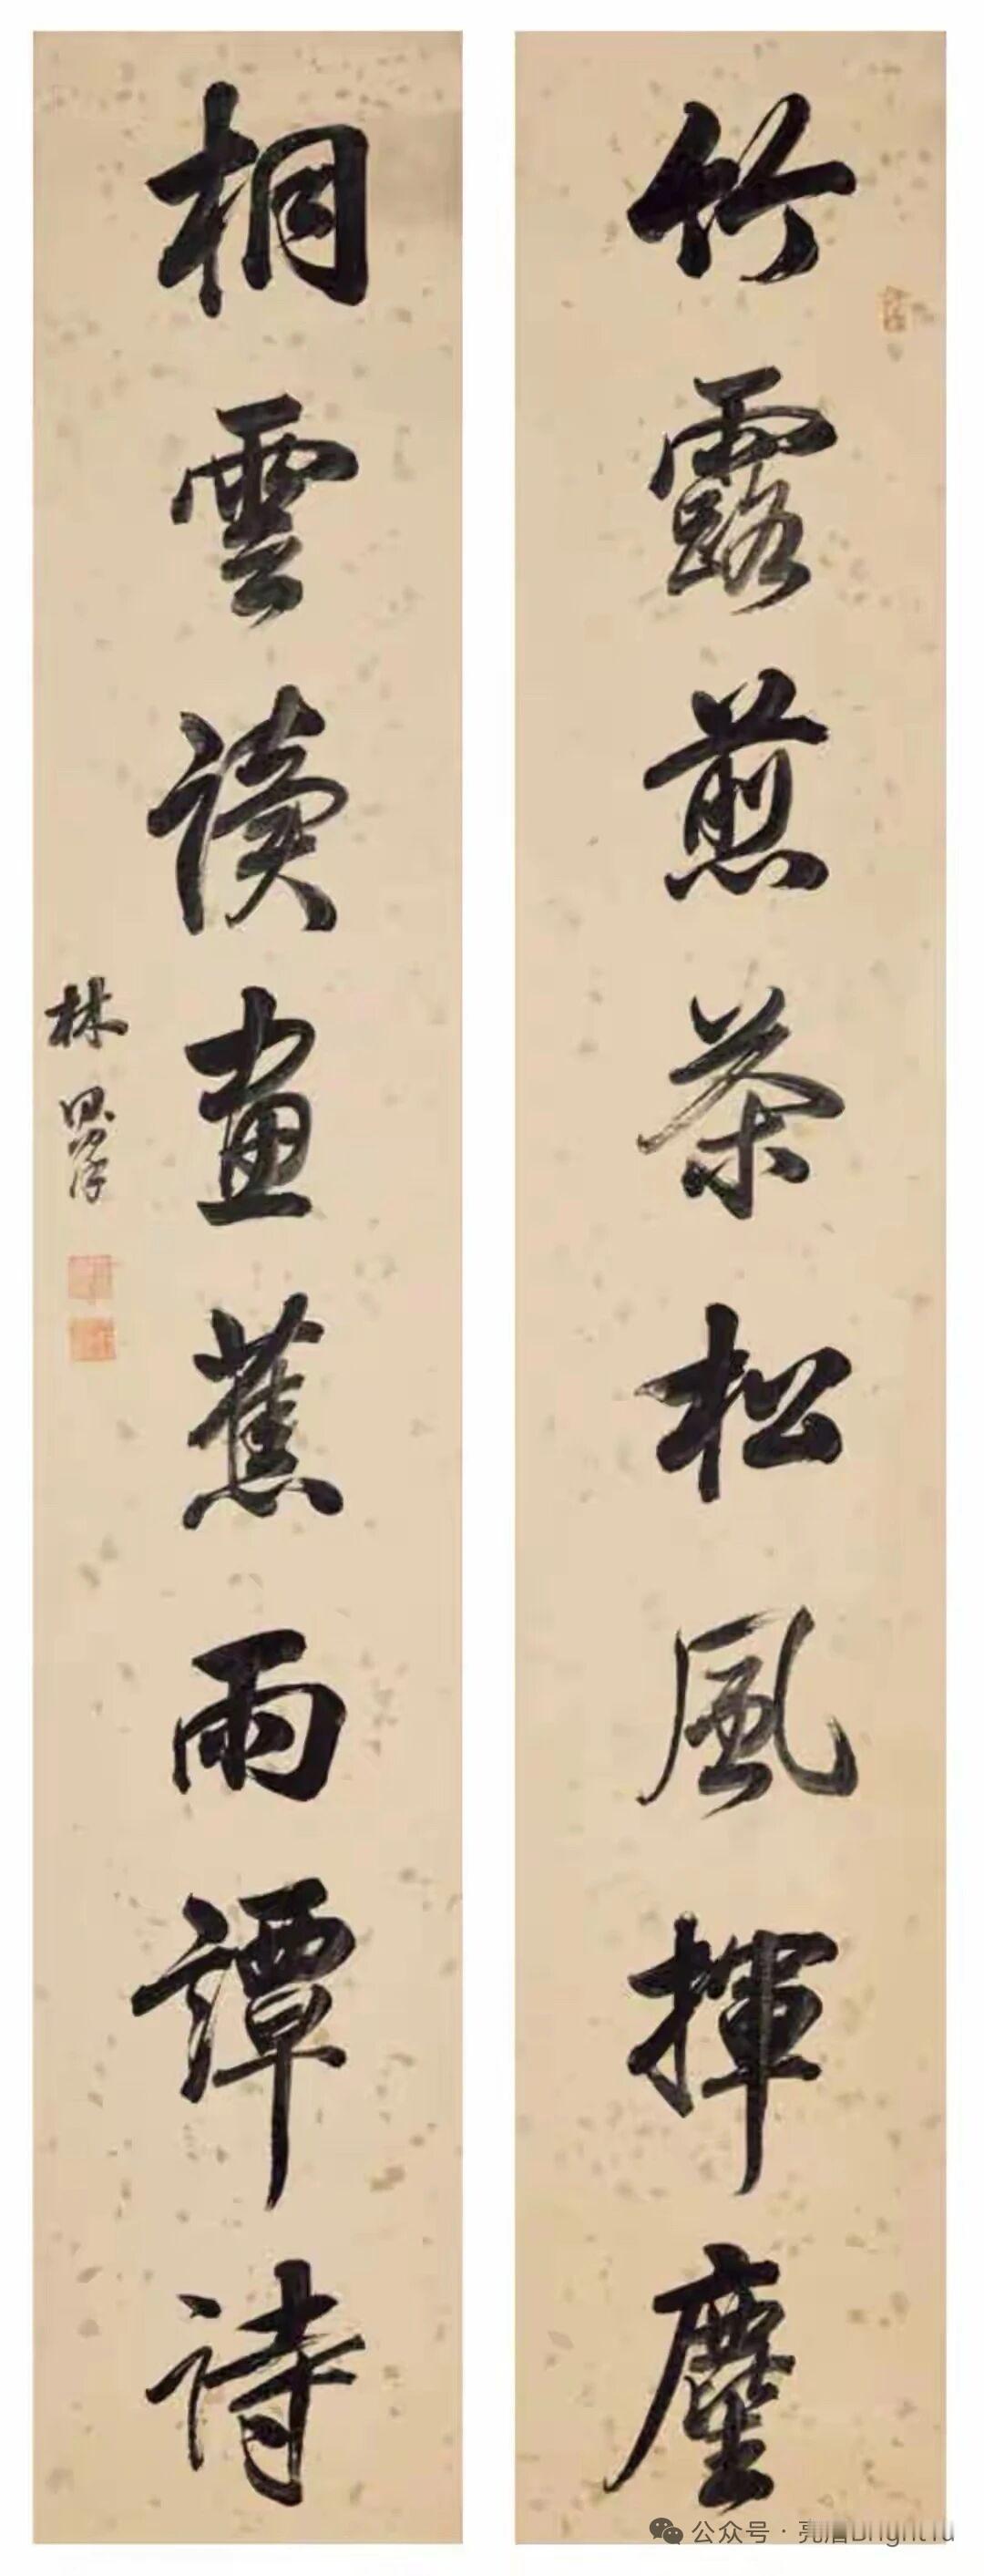 竹露煎茶松風揮麈
桐雲讀畫蕉雨譚詩
林則徐
公众号·亮